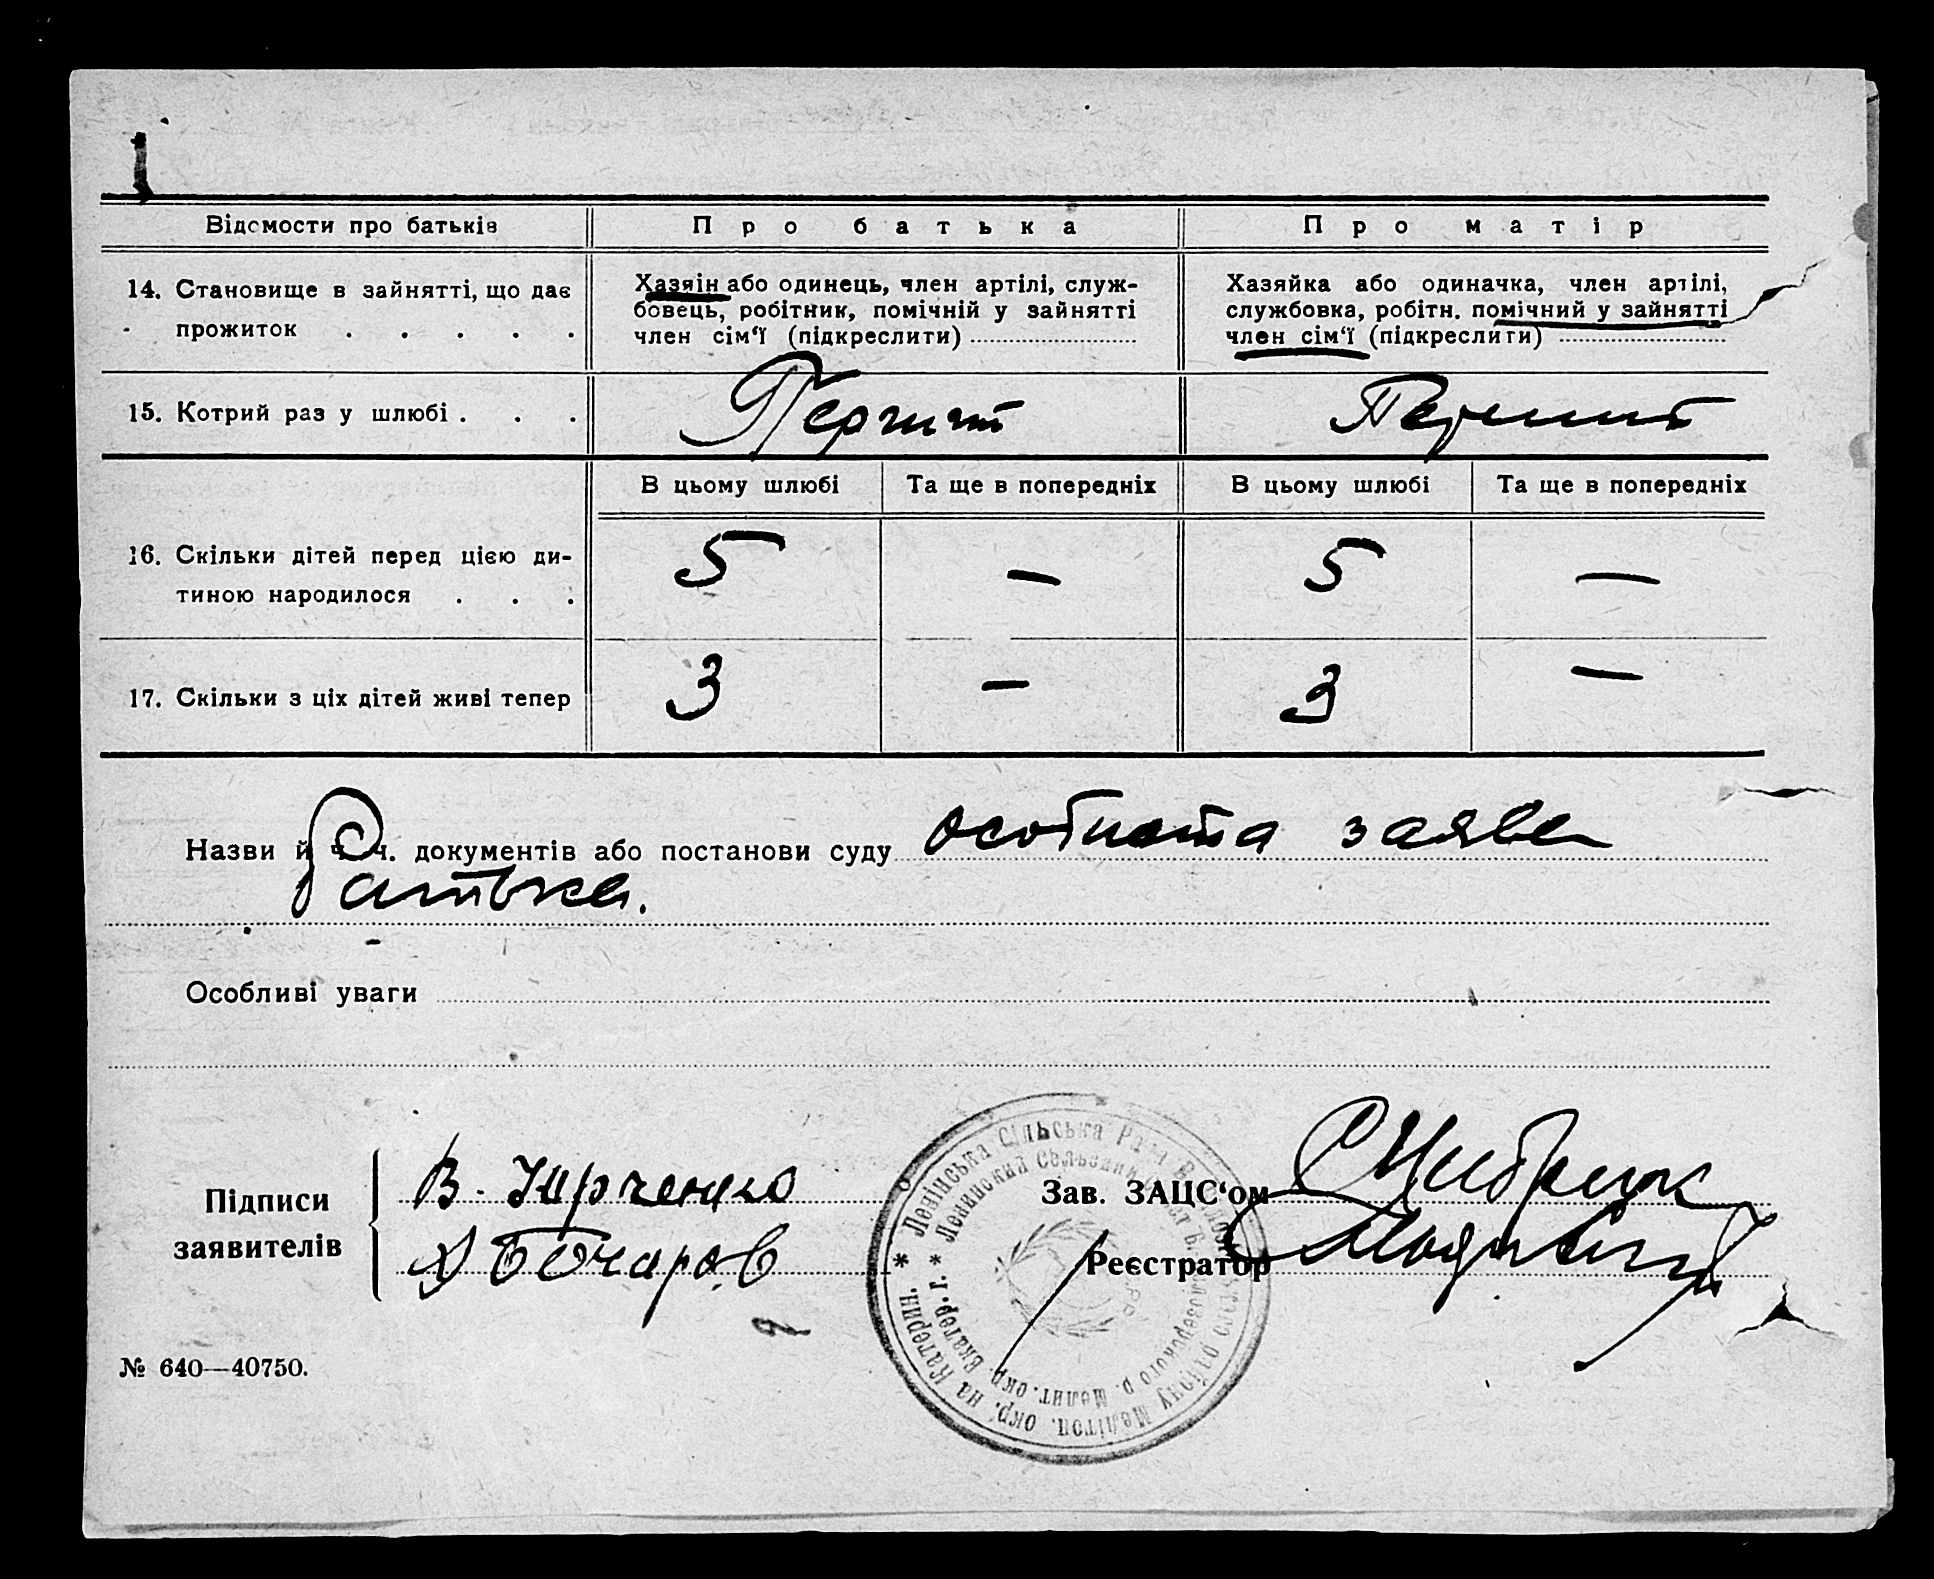 Відомости про батьків
Про батька
Про матір
14. Становище в зайнятті, що дає
прожиток . . . . .
Хазяїн або одинець, член артілі, служ-
бовець, робітник, помічній у зайнятті
член сім‘ї (підкреслити)
Хазяйка або одиначка, член артілі,
службовка, робітн. помічний у зайнятті
член сім‘ї (підкреслити)
15. Котрий раз у шлюбі . . .
Перший
Перший
В цьому шлюбі
Та ще в попередніх
В цьому шлюбі
Та ще в попередніх
16. Скільки дітей перед цією ди-
тиною народилося . . .
5
—
5
—
17. Скільки з ціх дітей живі тепер
3
—
3
—
Назви й ч. ч. документів або постанови суду особиста заява
батька.
Особливі уваги
Підписи
заявителів
В. Кирченко
Бочаров
Зав. ЗАЦС‘ом
Реєстратор
* Ленінська Сільська Рада
району Мелітоп. окр. на Катерин.
* Ленинский Сельский
р. Мелит. окр. Екатер. г.
№ 640—40750.